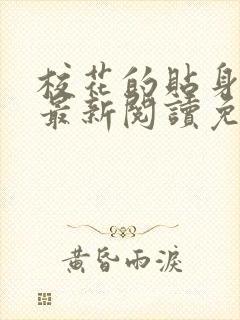 校花的貼身
最新閱讀免
黃昏雨淚